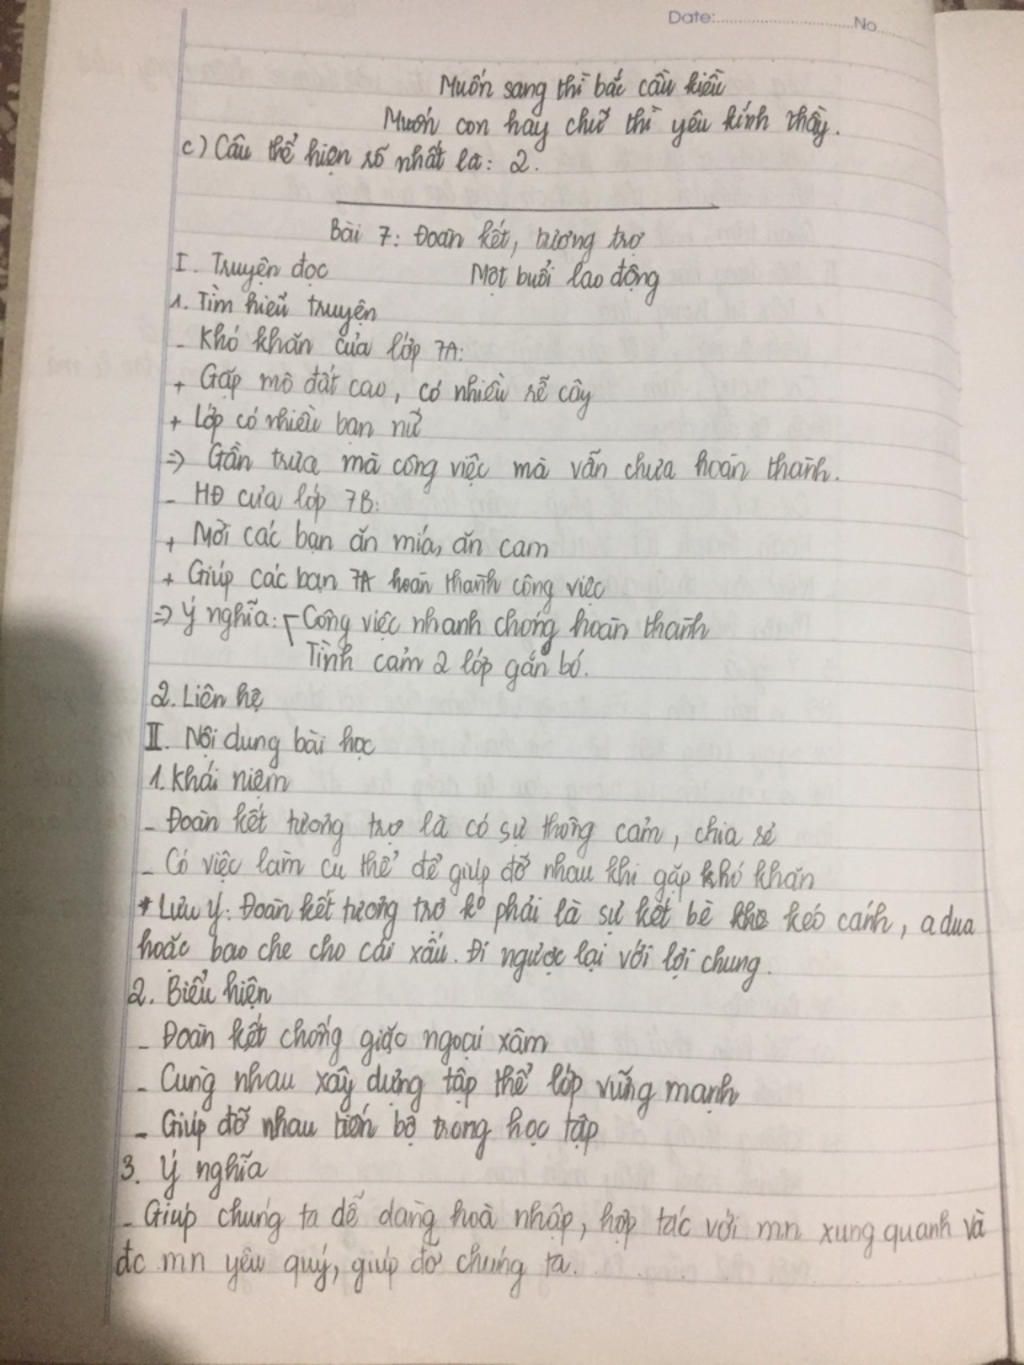 Date: No
Muốn sang thì bắc cầu kiều
Muốn con hay chữ thì yêu kính thầy.
c) Câu thể hiện rõ nhất là: 2.
Bài 7: Đoàn kết, tương trợ
I. Truyện đọc Một buổi lao động
1. Tìm hiểu truyện
- Khó khăn của lớp 7A:
+ Gặp mô đất cao, có nhiều rễ cây
+ Lớp có nhiều bạn nữ
=> Gần trưa mà công việc mà vẫn chưa hoàn thành.
- HĐ của lớp 7B:
+ Mời các bạn ăn mía, ăn cam
+ Giúp các bạn 7A hoàn thành công việc
=> Ý nghĩa: Công việc nhanh chóng hoàn thành
Tình cảm 2 lớp gắn bó.
2. Liên hệ
II. Nội dung bài học
1. Khái niệm
- Đoàn kết tương trợ là có sự thông cảm, chia sẻ
- Có việc làm cụ thể để giúp đỡ nhau khi gặp khó khăn
* Lưu ý: Đoàn kết tương trợ ko phải là sự kết bè kéo cánh, a dua
hoặc bao che cho cái xấu. Đi ngược lại với lợi chung.
2. Biểu hiện
- Đoàn kết chống giặc ngoại xâm
- Cùng nhau xây dựng tập thể lớp vững mạnh
- Giúp đỡ nhau tiến bộ trong học tập
3. Ý nghĩa
- Giúp chúng ta dễ dàng hoà nhập, hợp tác với mn xung quanh và
đc mn yêu quý, giúp đỡ chúng ta.